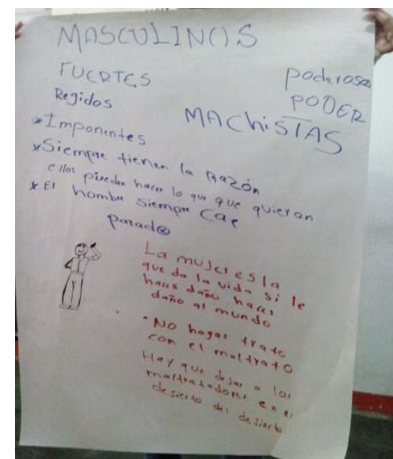 MASCULINOS
FUERTES
Poderosos
Regidos
PODER
*Imponentes
MACHISTAS
*Siempre tienen la Razón
ellos pueden hacer lo que que quieran
* El hombre siempre cae
parado
La mujer es la
que da la vida si le
haces daño haces
daño al mundo
• NO hagas trato
con el maltrato
Hay que dejar a los
maltratadores en el
desierto del desierto